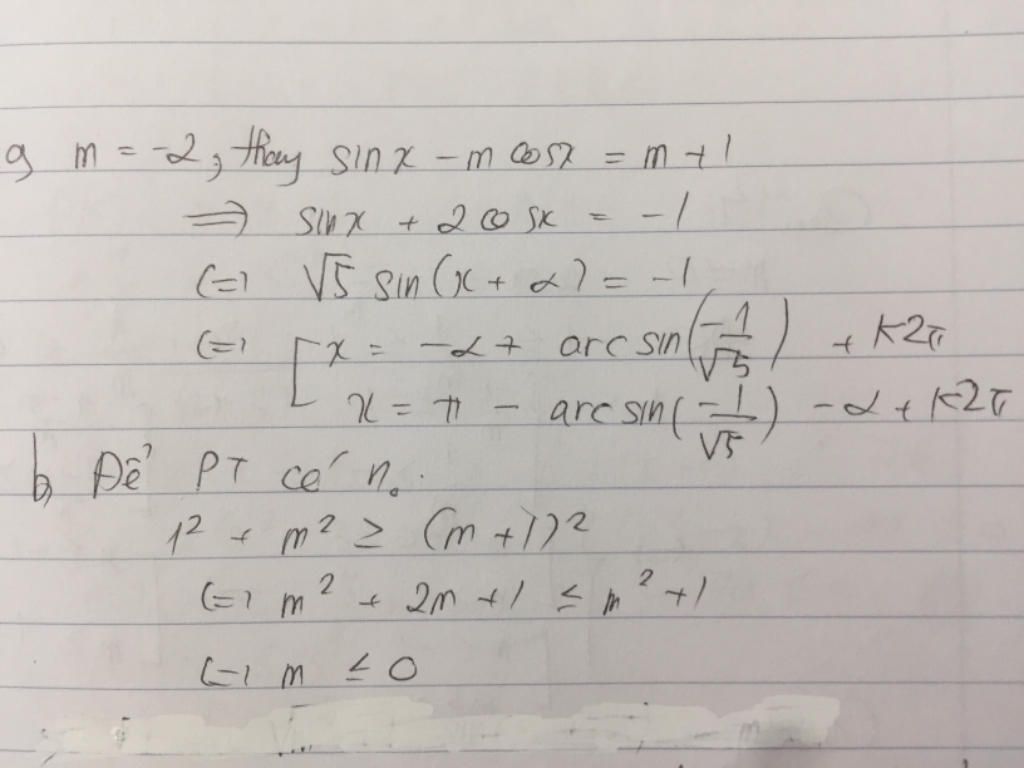 a, m = -2, thay sinx - m cosx = m + 1
=> sinx + 2 cosx = -1
(=) √5 sin(x + α) = -1
(=) [ x = -α + arc sin(-1/√5) + k2π
x = π - arc sin(-1/√5) - α + k2π
b, Để PT có n₀.
1² + m² ≥ (m + 1)²
(=) m² + 2m + 1 ≤ m² + 1
(=) m ≤ 0